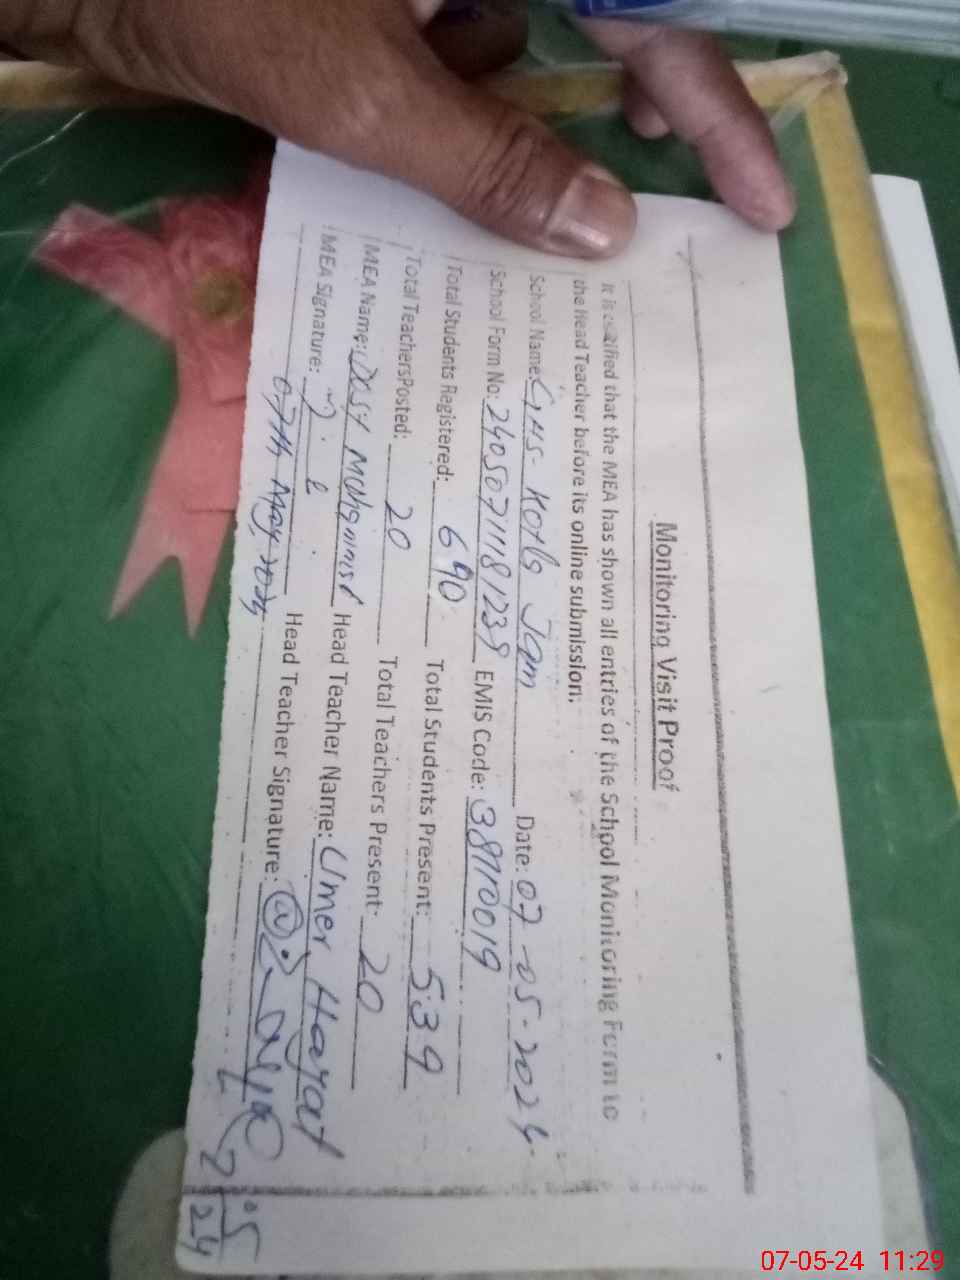 Monitoring Visit Proof
It is certified that the MEA has shown all entries of the School Monitoring Form to
the Head Teacher before its online submission.
School Name: GHS- Kotla Jam Date: 07-05-2024.
School Form No: EMIS Code: 38110019
Total Students Registered: 690 Total Students Present: 539
Total TeachersPosted: 20 Total Teachers Present: 20
MEA Name: Head Teacher Name: Umer Hayat
MEA Signature: Head Teacher Signature:
07th May, 2024
07-05-24 11:29